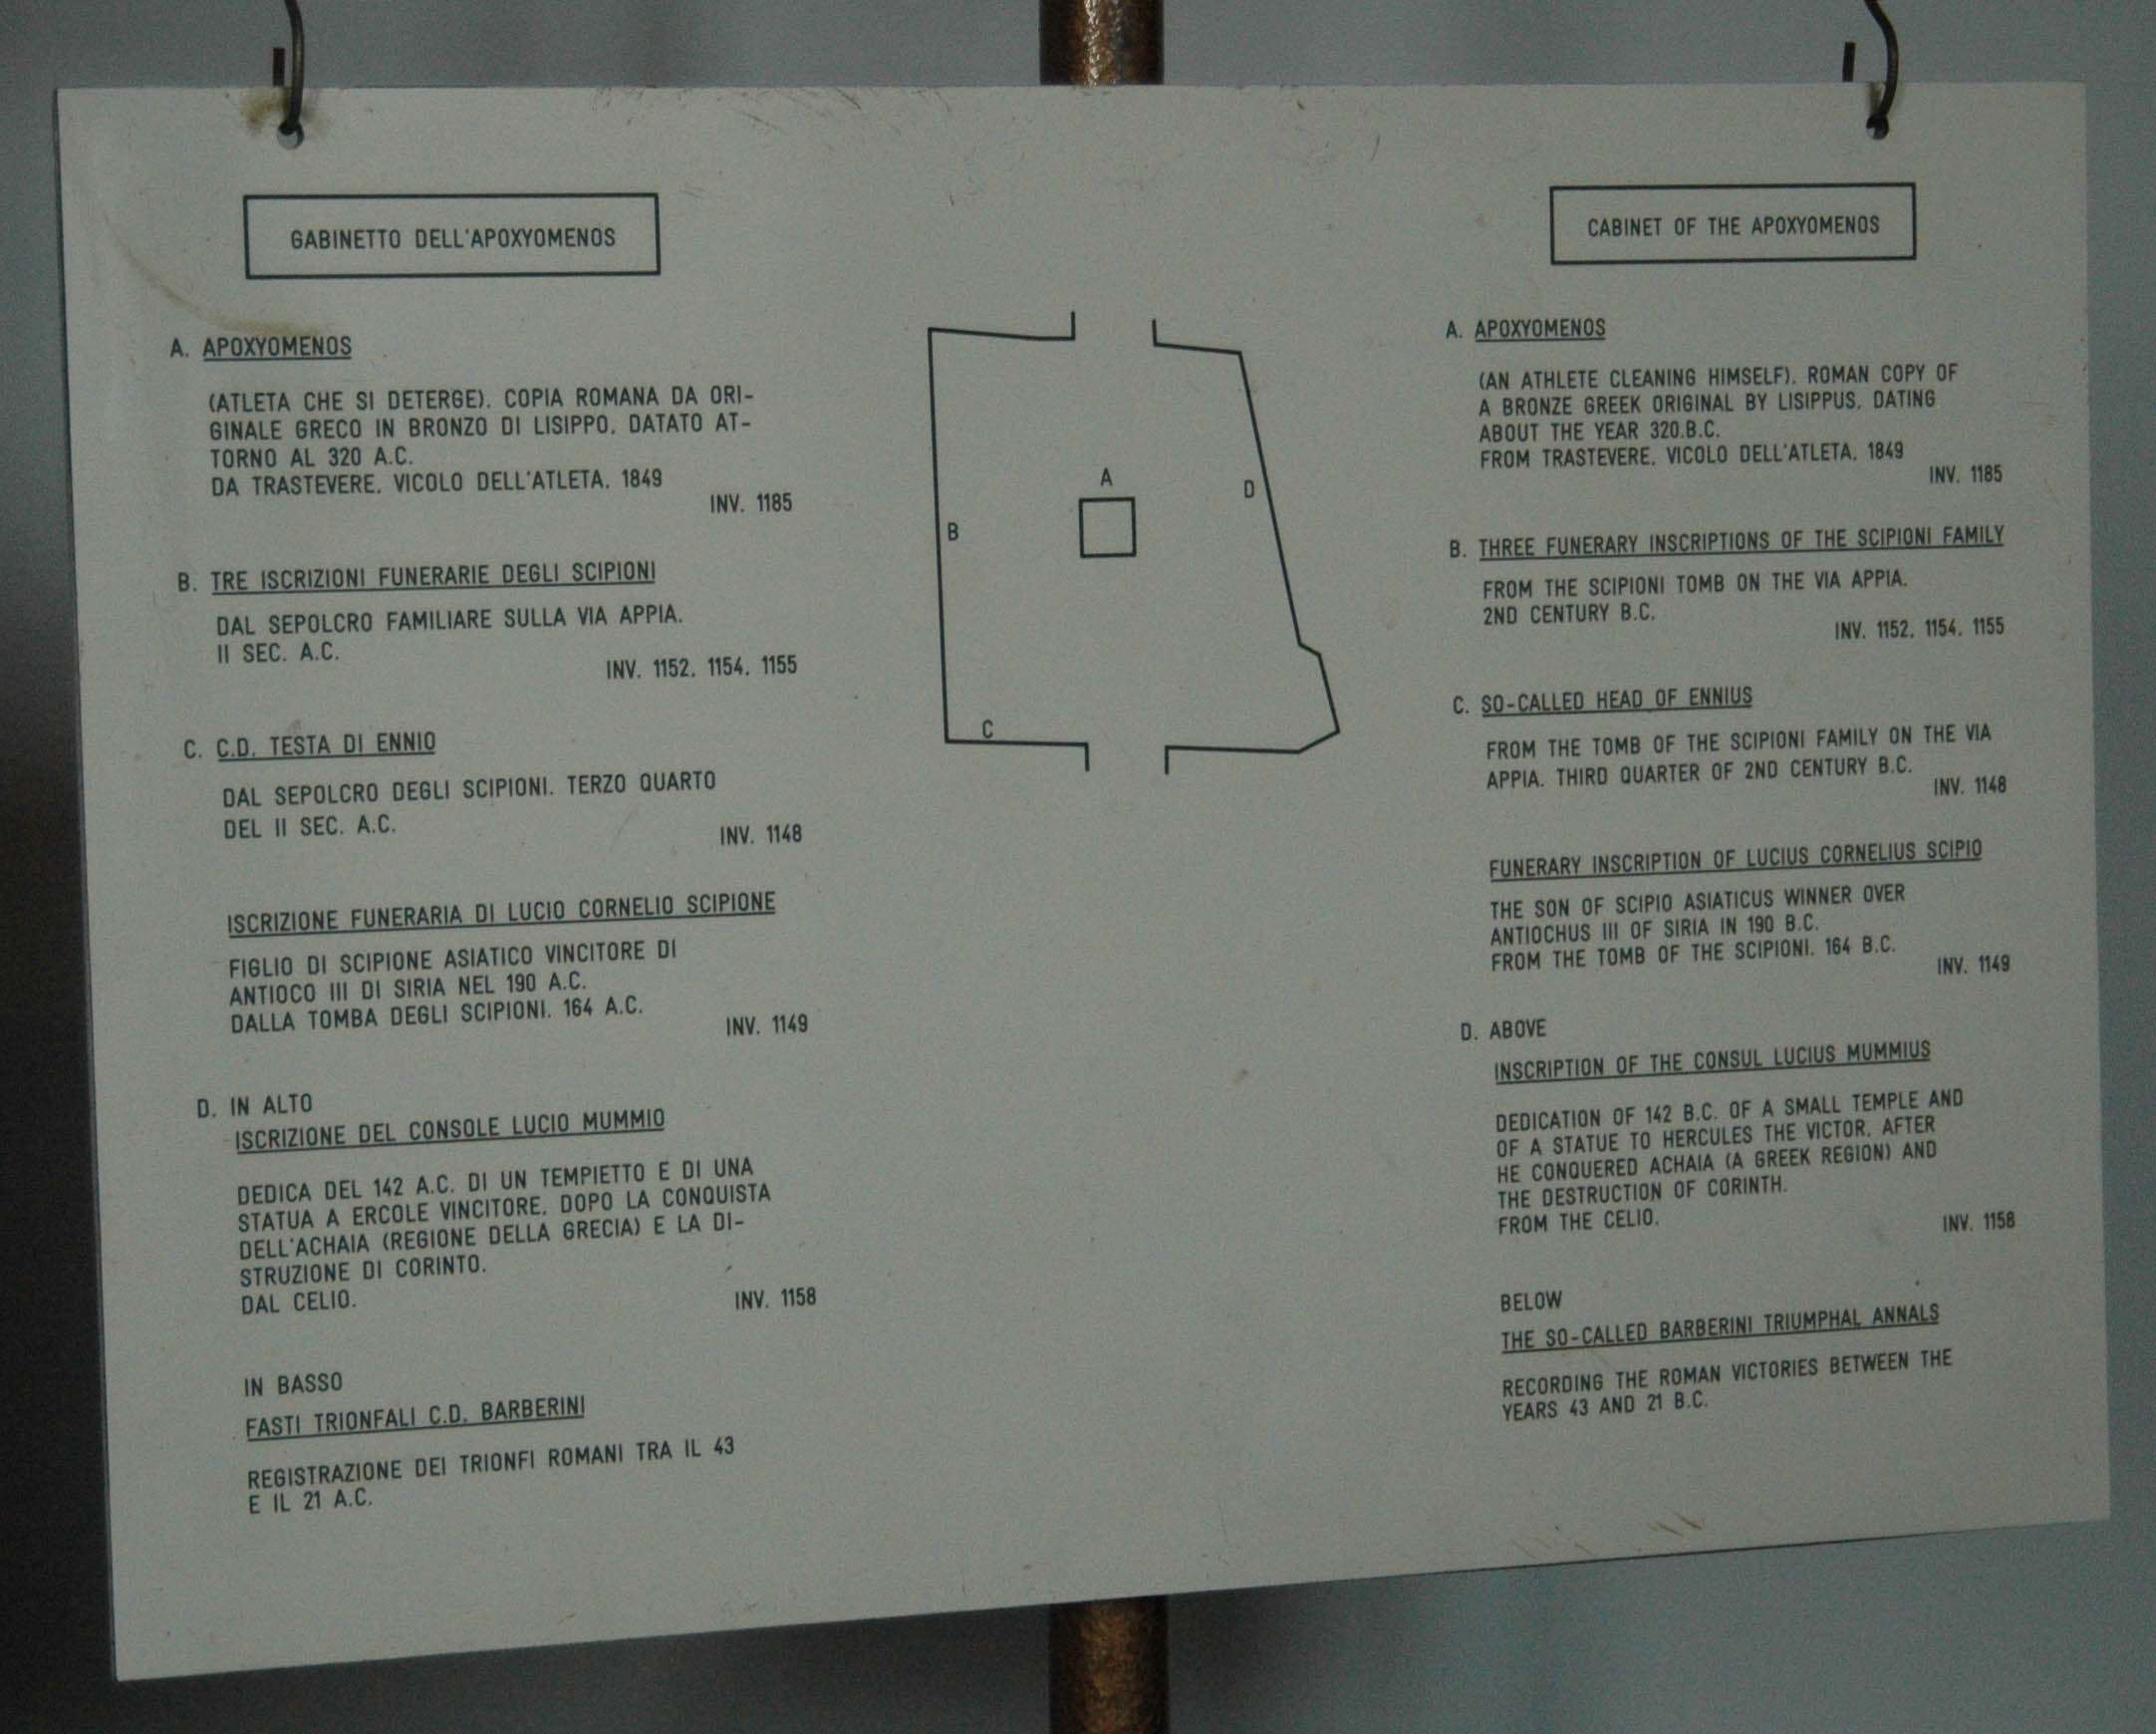 GABINETTO DELL'APOXYOMENOS
A. APOXYOMENOS
(ATLETA CHE SI DETERGE). COPIA ROMANA DA ORI-
GINALE GRECO IN BRONZO DI LISIPPO. DATATO AT-
TORNO AL 320 A.C.
DA TRASTEVERE. VICOLO DELL'ATLETA. 1849
INV. 1185
B. TRE ISCRIZIONI FUNERARIE DEGLI SCIPIONI
DAL SEPOLCRO FAMILIARE SULLA VIA APPIA.
II SEC. A.C.
INV. 1152. 1154. 1155
C. C.D. TESTA DI ENNIO
DAL SEPOLCRO DEGLI SCIPIONI. TERZO QUARTO
DEL II SEC. A.C.
INV. 1148
ISCRIZIONE FUNERARIA DI LUCIO CORNELIO SCIPIONE
FIGLIO DI SCIPIONE ASIATICO VINCITORE DI
ANTIOCO III DI SIRIA NEL 190 A.C.
DALLA TOMBA DEGLI SCIPIONI. 164 A.C.
INV. 1149
D. IN ALTO
ISCRIZIONE DEL CONSOLE LUCIO MUMMIO
DEDICA DEL 142 A.C. DI UN TEMPIETTO E DI UNA
STATUA A ERCOLE VINCITORE. DOPO LA CONQUISTA
DELL'ACHAIA (REGIONE DELLA GRECIA) E LA DI-
STRUZIONE DI CORINTO.
DAL CELIO.
INV. 1158
IN BASSO
FASTI TRIONFALI C.D. BARBERINI
REGISTRAZIONE DEI TRIONFI ROMANI TRA IL 43
E IL 21 A.C.
A
B
C
D
CABINET OF THE APOXYOMENOS
A. APOXYOMENOS
(AN ATHLETE CLEANING HIMSELF). ROMAN COPY OF
A BRONZE GREEK ORIGINAL BY LISIPPUS. DATING
ABOUT THE YEAR 320.B.C.
FROM TRASTEVERE. VICOLO DELL'ATLETA. 1849
INV. 1185
B. THREE FUNERARY INSCRIPTIONS OF THE SCIPIONI FAMILY
FROM THE SCIPIONI TOMB ON THE VIA APPIA.
2ND CENTURY B.C.
INV. 1152. 1154. 1155
C. SO-CALLED HEAD OF ENNIUS
FROM THE TOMB OF THE SCIPIONI FAMILY ON THE VIA
APPIA. THIRD QUARTER OF 2ND CENTURY B.C.
INV. 1148
FUNERARY INSCRIPTION OF LUCIUS CORNELIUS SCIPIO
THE SON OF SCIPIO ASIATICUS WINNER OVER
ANTIOCHUS III OF SIRIA IN 190 B.C.
FROM THE TOMB OF THE SCIPIONI. 164 B.C.
INV. 1149
D. ABOVE
INSCRIPTION OF THE CONSUL LUCIUS MUMMIUS
DEDICATION OF 142 B.C. OF A SMALL TEMPLE AND
OF A STATUE TO HERCULES THE VICTOR. AFTER
HE CONQUERED ACHAIA (A GREEK REGION) AND
THE DESTRUCTION OF CORINTH.
FROM THE CELIO.
INV. 1158
BELOW
THE SO-CALLED BARBERINI TRIUMPHAL ANNALS
RECORDING THE ROMAN VICTORIES BETWEEN THE
YEARS 43 AND 21 B.C.